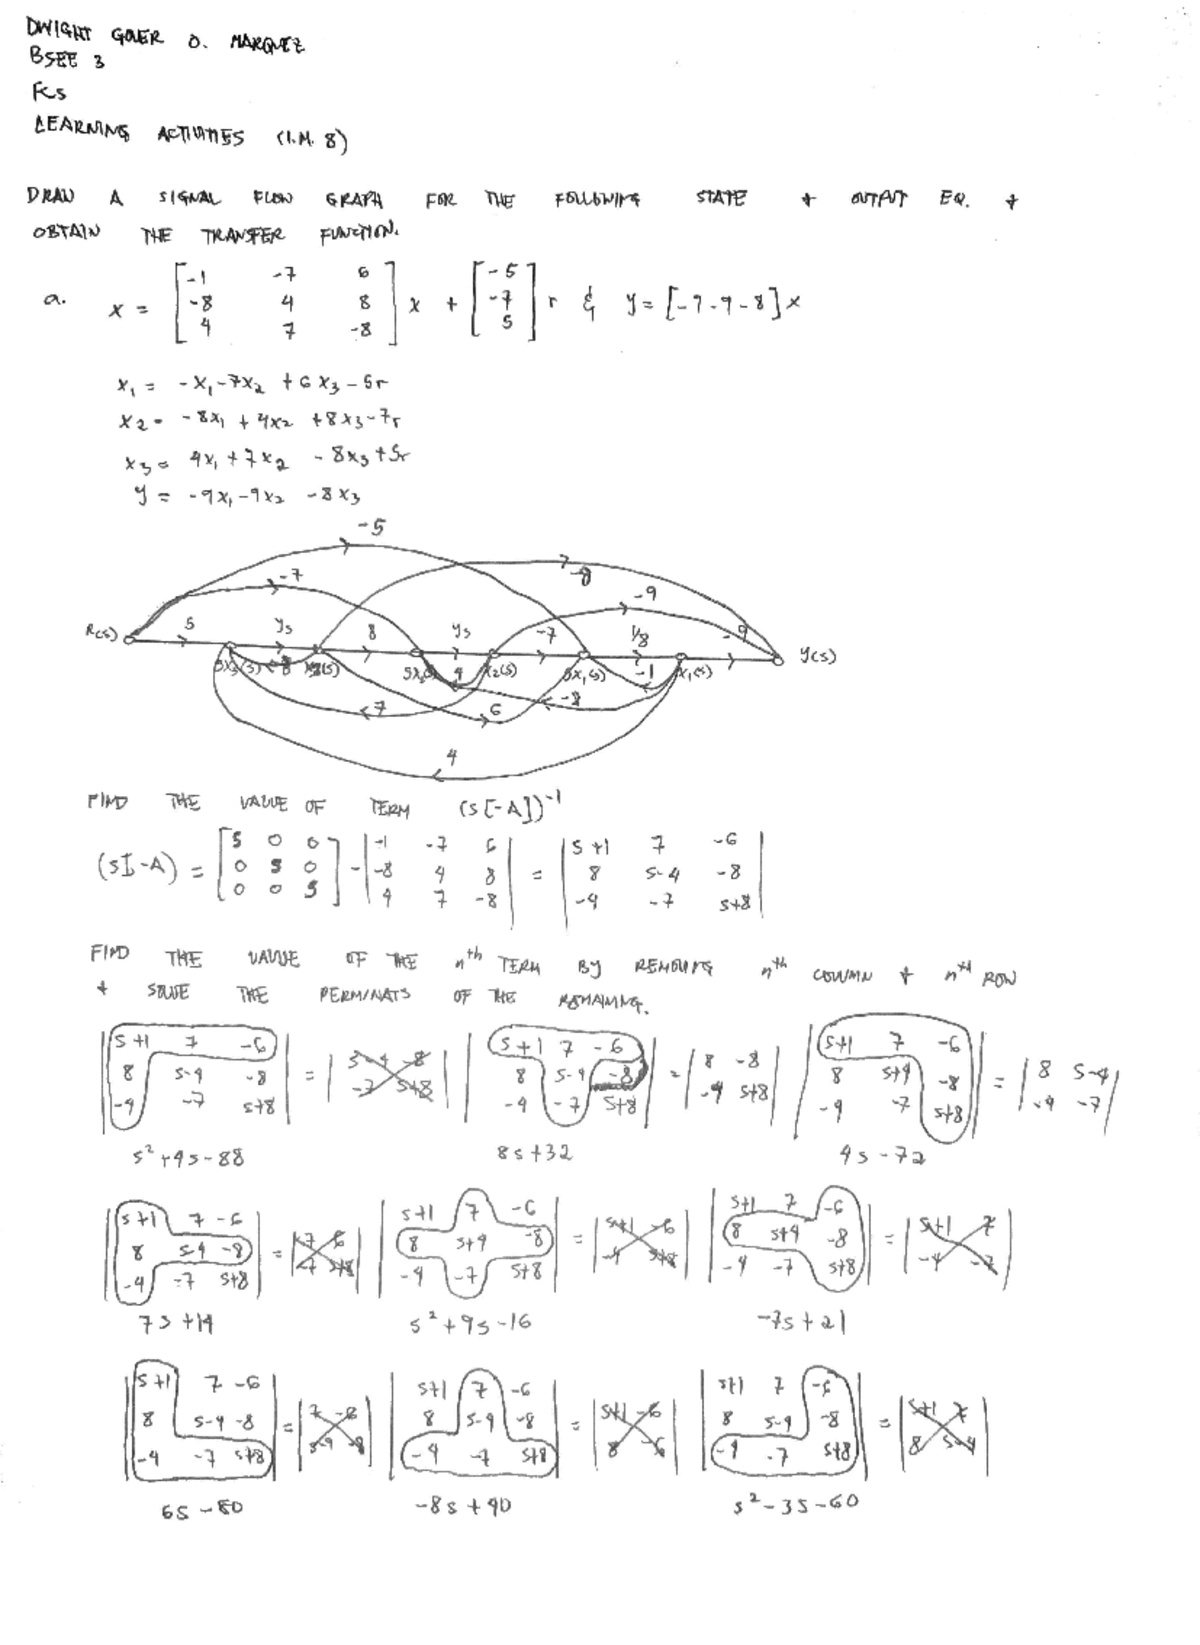 DWIGHT GOLER O. MARQUEZ
BSEE 3
FCS
LEARNING ACTIVITIES (I.M. 8)
DRAW A SIGNAL FLOW GRAPH FOR THE FOLLOWING STATE + OUTPUT EQ. +
OBTAIN THE TRANSFER FUNCTION.
a. x = [-1 -7 6; -8 4 8; 4 7 -8] x + [-5; -7; 5] r & y = [-9 -9 -8] x
x₁ = -x₁ -7x₂ + 6x₃ - 5r
x₂ = -8x₁ + 4x₂ + 8x₃ -7r
x₃ = 4x₁ + 7x₂ - 8x₃ + 5r
y = -9x₁ -9x₂ -8x₃
-5
-7 -8
-9
R(s) 5 1/s 8 1/s -7 1/s -9 Y(s)
sX₃(s) -8 X₃(s) sX₂(s) 4 X₂(s) sX₁(s) -1 X₁(s)
7 6 -8
4
FIND THE VALUE OF TERM (s[-A])⁻¹
(sI-A) = [s 0 0; 0 s 0; 0 0 s] - |-1 -7 6; -8 4 8; 4 7 -8| = |s+1 7 -6; 8 s-4 -8; -4 -7 s+8|
FIND THE VALUE OF THE nth TERM BY REMOVING nth COLUMN + nth ROW
+ SOLVE THE PERMINATS OF THE REMAINING.
|s+1 7 -6; 8 s-4 -8; -4 -7 s+8| = |s-4 -8; -7 s+8| |s+1 7 -6; 8 s-4 -8; -4 -7 s+8| = |8 -8; -4 s+8| |s+1 7 -6; 8 s+4 -8; -4 -7 s+8| = |8 s-4; -4 -7|
s²+4s-88 8s+32 4s-72
|s+1 7 -6; 8 s-4 -8; -4 -7 s+8| = |7 -6; -7 s+8| |s+1 7 -6; 8 s+4 -8; -4 -7 s+8| = |s+1 -6; -4 s+8| |s+1 7 -6; 8 s+4 -8; -4 -7 s+8| = |s+1 7; -4 -7|
7s+14 s²+9s-16 -7s+21
|s+1 7 -6; 8 s-4 -8; -4 -7 s+8| = |7 -6; s-4 -8| |s+1 7 -6; 8 s-4 -8; -4 -7 s+8| = |s+1 -6; 8 -6| |s+1 7 -6; 8 s-4 -8; -4 -7 s+8| = |s+1 7; 8 s-4|
6s-80 -8s+40 s²-3s-60